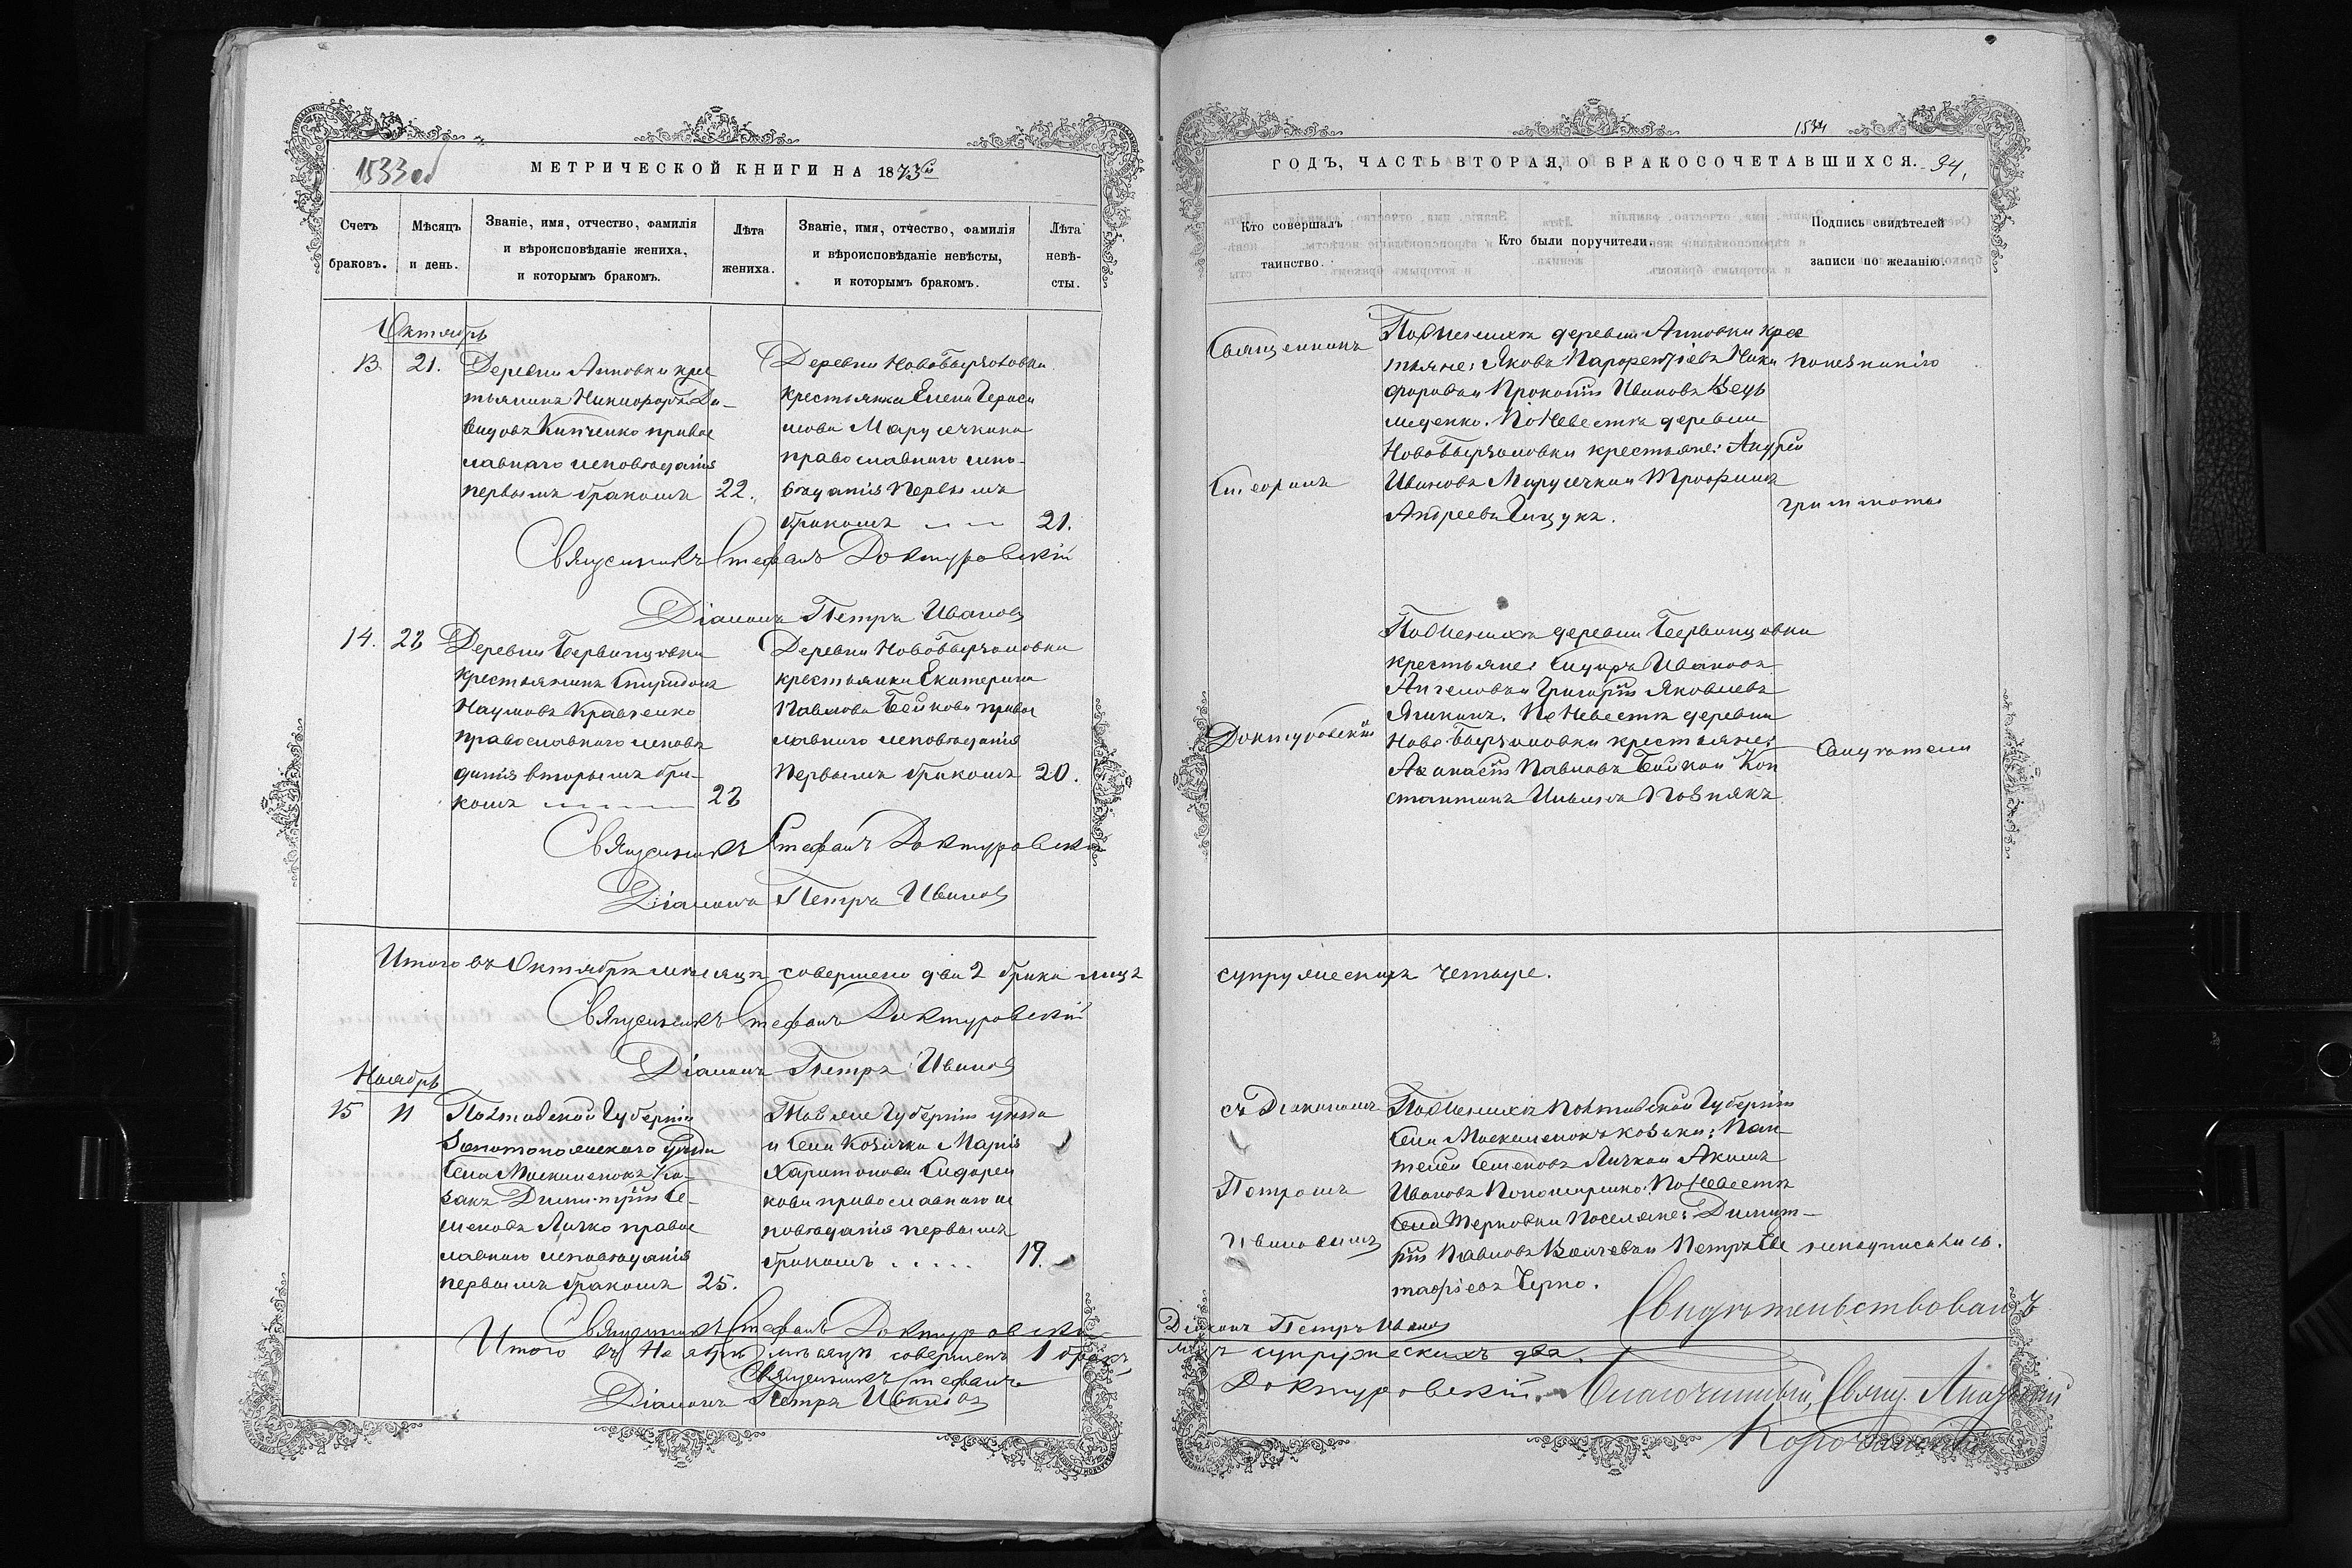 1533 об
МЕТРИЧЕСКОЙ КНИГИ НА 1873й
Счетъ браковъ.
Мѣсяцъ и день.
Званіе, имя, отчество, фамилія
и вѣроисповѣданіе жениха,
и которымъ бракомъ.
Лѣта
жениха.
Званіе, имя, отчество, фамилія
и вѣроисповѣданіе невѣсты,
и которымъ бракомъ.
Лѣта
невѣ-
сты.
Октябрь
13. 21.
Деревни Анновки крес
тьянинъ Никифоръ Да-
видовъ Кипченко правос
лавнаго исповѣданія
первымъ бракомъ 22.
Деревни Новобырголовки
крестьянка Елена Гераси
мова Марусечкина
православнаго испо-
вѣданія первымъ
бракомъ 21.
Священникъ Стефанъ Доктуровскій
Діаконъ Петръ Ивановъ
14. 22
Деревни
крестьянинъ Спиридонъ
Наумовъ Кравченко
православнаго исповѣ
данія вторымъ бра-
комъ 22
Деревни Новобырголовки
крестьянка Екатерина
Павлова Бойкова правос
лавнаго исповѣданія
первымъ бракомъ 20.
Священникъ Стефанъ Доктуровскій
Діаконъ Петръ Ивановъ
Итого въ Октябрѣ мѣсяцѣ совершено два 2 брака лицъ
Священникъ Стефанъ Доктуровскій
Діаконъ Петръ Ивановъ
Ноябрь
15 11
Полтавской Губерніи
Золотоношскаго уѣзда
Села Москаленокъ Ко-
закъ Димитрій Се-
меновъ Личко правос
лавнаго исповѣданія
первымъ бракомъ 25.
Тойже Губерніи уѣзда
и Села Козачка Марія
Харитонова Сидорен
кова православнаго ис
повѣданія первымъ
бракомъ 19.
Священникъ Стефанъ Доктуровскій
Итого въ Ноябрѣ мѣсяцѣ совершенъ 1 бракъ
Священникъ Стефанъ
Діаконъ Петръ Ивановъ
1534
ГОДЪ, ЧАСТЬ ВТОРАЯ, О БРАКОСОЧЕТАВШИХСЯ. 94,
Кто совершалъ
таинство.
Кто были поручители.
Подпись свидѣтелей
записи по желанію.
Священникъ
Стефанъ
Доктуровскій
съ Діакономъ
Петромъ
Ивановымъ
По Женихѣ деревни Анновки крес
тьяне: Яковъ Парфентіевъ Ники
форовъ и Прокопій Ивановъ Ведь
меденко. По Невестѣ деревни
Новобырголовки крестьяне: Андрей
Ивановъ Марусечка и Трофимъ
Андреевъ Гицукъ.
По Женихѣ деревни
крестьяне: Сидоръ Ивановъ
и Григорій Яковлевъ
По Невестѣ деревни
Новобырголовки крестьяне:
Павловъ Бойко и Кон
стантинъ Познякъ
понезнанію
грамматы
Свидѣтели
неподписались.
супружескихъ четыре.
По Женихѣ Полтавской Губерніи
Села Москаленокъ козаки: Пан
телей Семеновъ Личко и Акимъ
Ивановъ Пономаренко. По Невестѣ
Села Терновки поселяне: Димит-
рій Павловъ и Петръ Евс
тафіевъ Черно.
Діаконъ Петръ Ивановъ
Свидѣтельствовалъ
супружескихъ два.
Доктуровскій. Благочинный, Свящ.